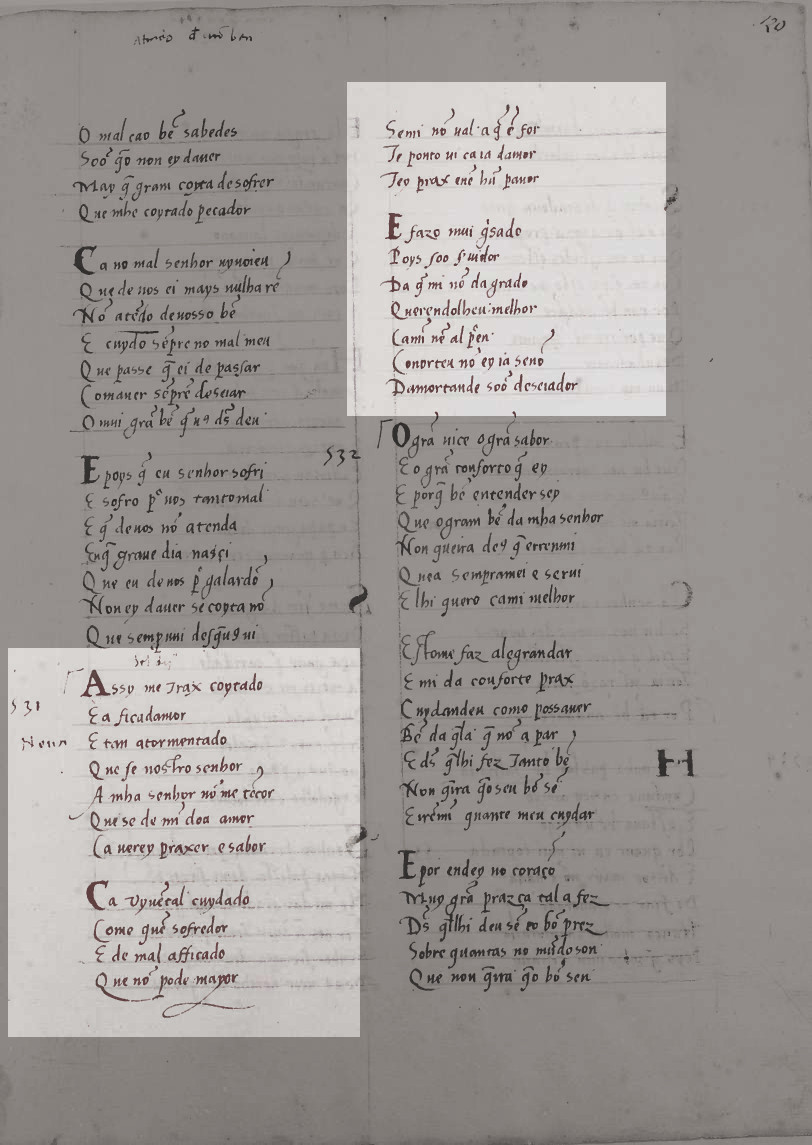 50
O mal cao bẽ sabedes
Soo q̃o non ey dauer
May q̃ gram coyta desofrer
Que mhe coytado pecador
Ca no mal senhor uyuoieu
Que de uos ei mays nulha rẽ
Nõ atẽdo deuosso bẽ
E cuydo sẽpre no mal meu
Que passe q̃ ei de passar
Comauer sẽpre deseiar
O mui grã bẽ q̃ uꝯ d̃s deu
E poys q̃ eu senhor sofri
E sofro p̃ uos tanto mal
E q̃ deuos nõ atenda
Enq̃ graue dia nasçi
Que eu de uos p̃ galardõ
Non ey dauer se coyta nõ
Que sempuui desq̃uꝯui
531
Assy me Trax coytado
E a ficadamor
E tan atormentado
Que se nostro senhor
A mha senhor nõ me tẽcor
Que se de mĩ doa amor
Ca uerey praxer e sabor
Ca uyuẽ tal cuydado
Come quẽ sofredor
E de mal afficado
Que nõ pode mayor
Semi nõ ual a q̃ ẽ for
Te ponto ui ca ia damor
Tey prax enẽ hũ pauor
E fazo mui g̃sado
Poys soo s̃uidor
Da q̃ mi nõ da grado
Querendolheu melhor
Camĩ nẽ al p̃en
Conorteu nõ ey ia senõ
Damortande soõ deseiador
532
O grã uice o grã sabor
E o grã conforto q̃ ey
E porq̃ bẽ entender sey
Que o gram bẽ da mha senhor
Non queira deꝯ q̃ errenmi
Quea sempramei e serui
E lhi quero cami melhor
Esto me faz alegrandar
E mi da conforte prax
Cuydandeu como possauer
Bẽ da q̃la q̃ nõ a par
E d̃s q̃lhi fez Tanto bẽ
Non q̃ira q̃o seu bõ sẽ
Eirẽmĩ quante meu cuydar
E por endey no coraçõ
Muy grã praz ca tal a fez
D̃s q̃lhi deu sẽ eo bõ prez
Sobre quantas no mũdo son
Que non q̃ira q̃o bõ sen